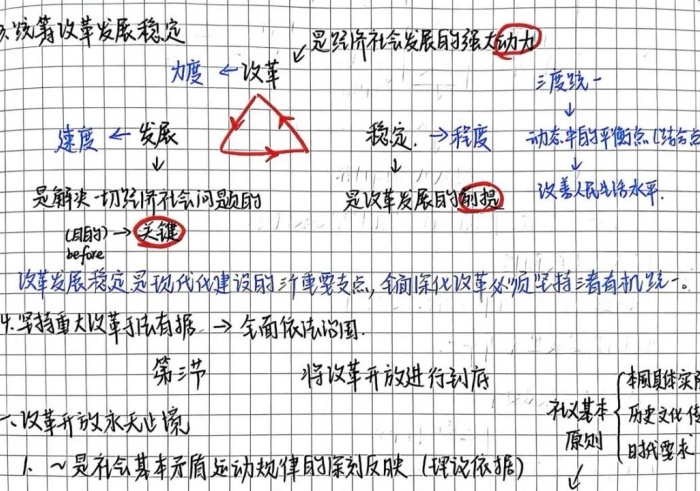 3.统筹改革发展稳定
是经济社会发展的强大动力
力度 ← 改革
三度统一
速度 ← 发展
稳定 → 程度
动态中的平衡点(结合点
是解决一切经济社会问题的
是改革发展的前提
改善人民生活水平.
(目的) → 关键
before
改革发展稳定是现代化建设的三个重要支点,全面深化改革必须坚持三者有机统一。
4.坚持重大改革于法有据 → 全面依法治国.
第三节 将改革开放进行到底
本国具体实际
社议基本
原则
历史文化传
时代要求
一、改革开放永无止境
1. ~是社会基本矛盾运动规律的深刻反映 (理论依据)